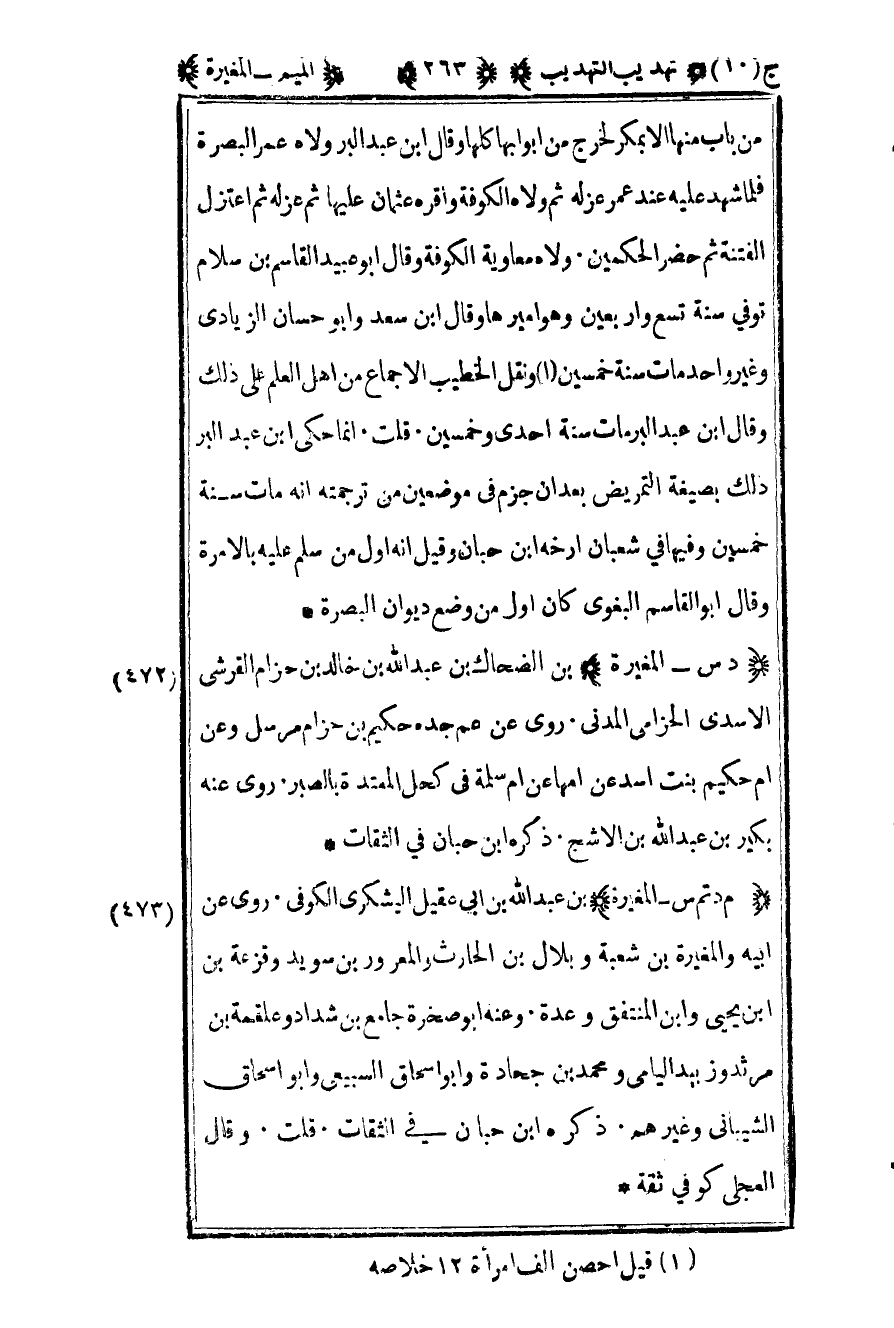 ج (١٠) تهذيب التهذيب ٢٦٣ الميم ـ المغيرة
من باب منها الا بمكر لخرج من ابوابها كلها وقال ابن عبد البر ولاه عمر البصرة
فلما شهد عليه عند عمر عزله ثم ولاه الكوفة واقره عثمان عليها ثم عزله ثم اعتزل
الفتنة ثم حضر الحكمين · ولاه معاوية الكوفة وقال ابو عبيد القاسم بن سلام
توفي سنة تسع واربعين وهو اميرها وقال ابن سعد وابو حسان الزيادى
وغير واحد مات سنة خمسين (١) ونقل الخطيب الاجماع من اهل العلم على ذلك
وقال ابن عبد البر مات سنة احدى وخمسين · قلت · انما حكى ابن عبد البر
ذلك بصيغة التمريض بعد ان جزم فى موضعين من ترجمته انه مات سنة
خمسين وفيها في شعبان ارخه ابن حبان وقيل انه اول من سلم عليه بالامرة
وقال ابو القاسم البغوى كان اول من وضع ديوان البصرة *
(٤٧٢) ﴿ د س ـ المغيرة ﴾ بن الضحاك بن عبد الله بن خالد بن حزام القرشى
الاسدى الحزامى المدنى · روى عن عم جده حكيم بن حزام مرسل وعن
ام حكيم بنت اسد عن امها عن ام سلمة فى كحل المعتدة بالصبر · روى عنه
بكير بن عبد الله بن الاشج · ذكره ابن حبان في الثقات *
(٤٧٣) ﴿ م د تم س ـ المغيرة ﴾ بن عبد الله بن ابي عقيل اليشكرى الكوفى · روى عن
ابيه والمغيرة بن شعبة و بلال بن الحارث والمعرور بن سويد وقزعة بن
ابن يحيى وابن المنتفق و عدة · وعنه ابو صخرة جامع بن شداد وعلقمة بن
مرثد وزبيد اليامى و محمد بن جحادة وابو اسحاق السبيعى وابو اسحاق
الشيبانى وغيرهم · ذكره ابن حبان في الثقات · قلت · وقال
العجلى كوفي ثقة *
(١) قيل احصن الف امرأة ١٢ خلاصه